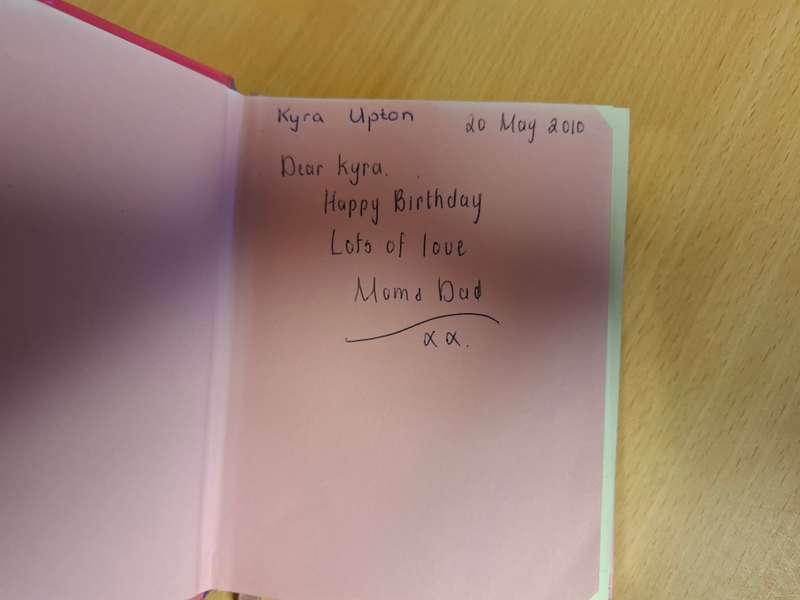 Kyra Upton 20 May 2010
Dear Kyra.
Happy Birthday
Lots of love
Mom & Dad
xx.